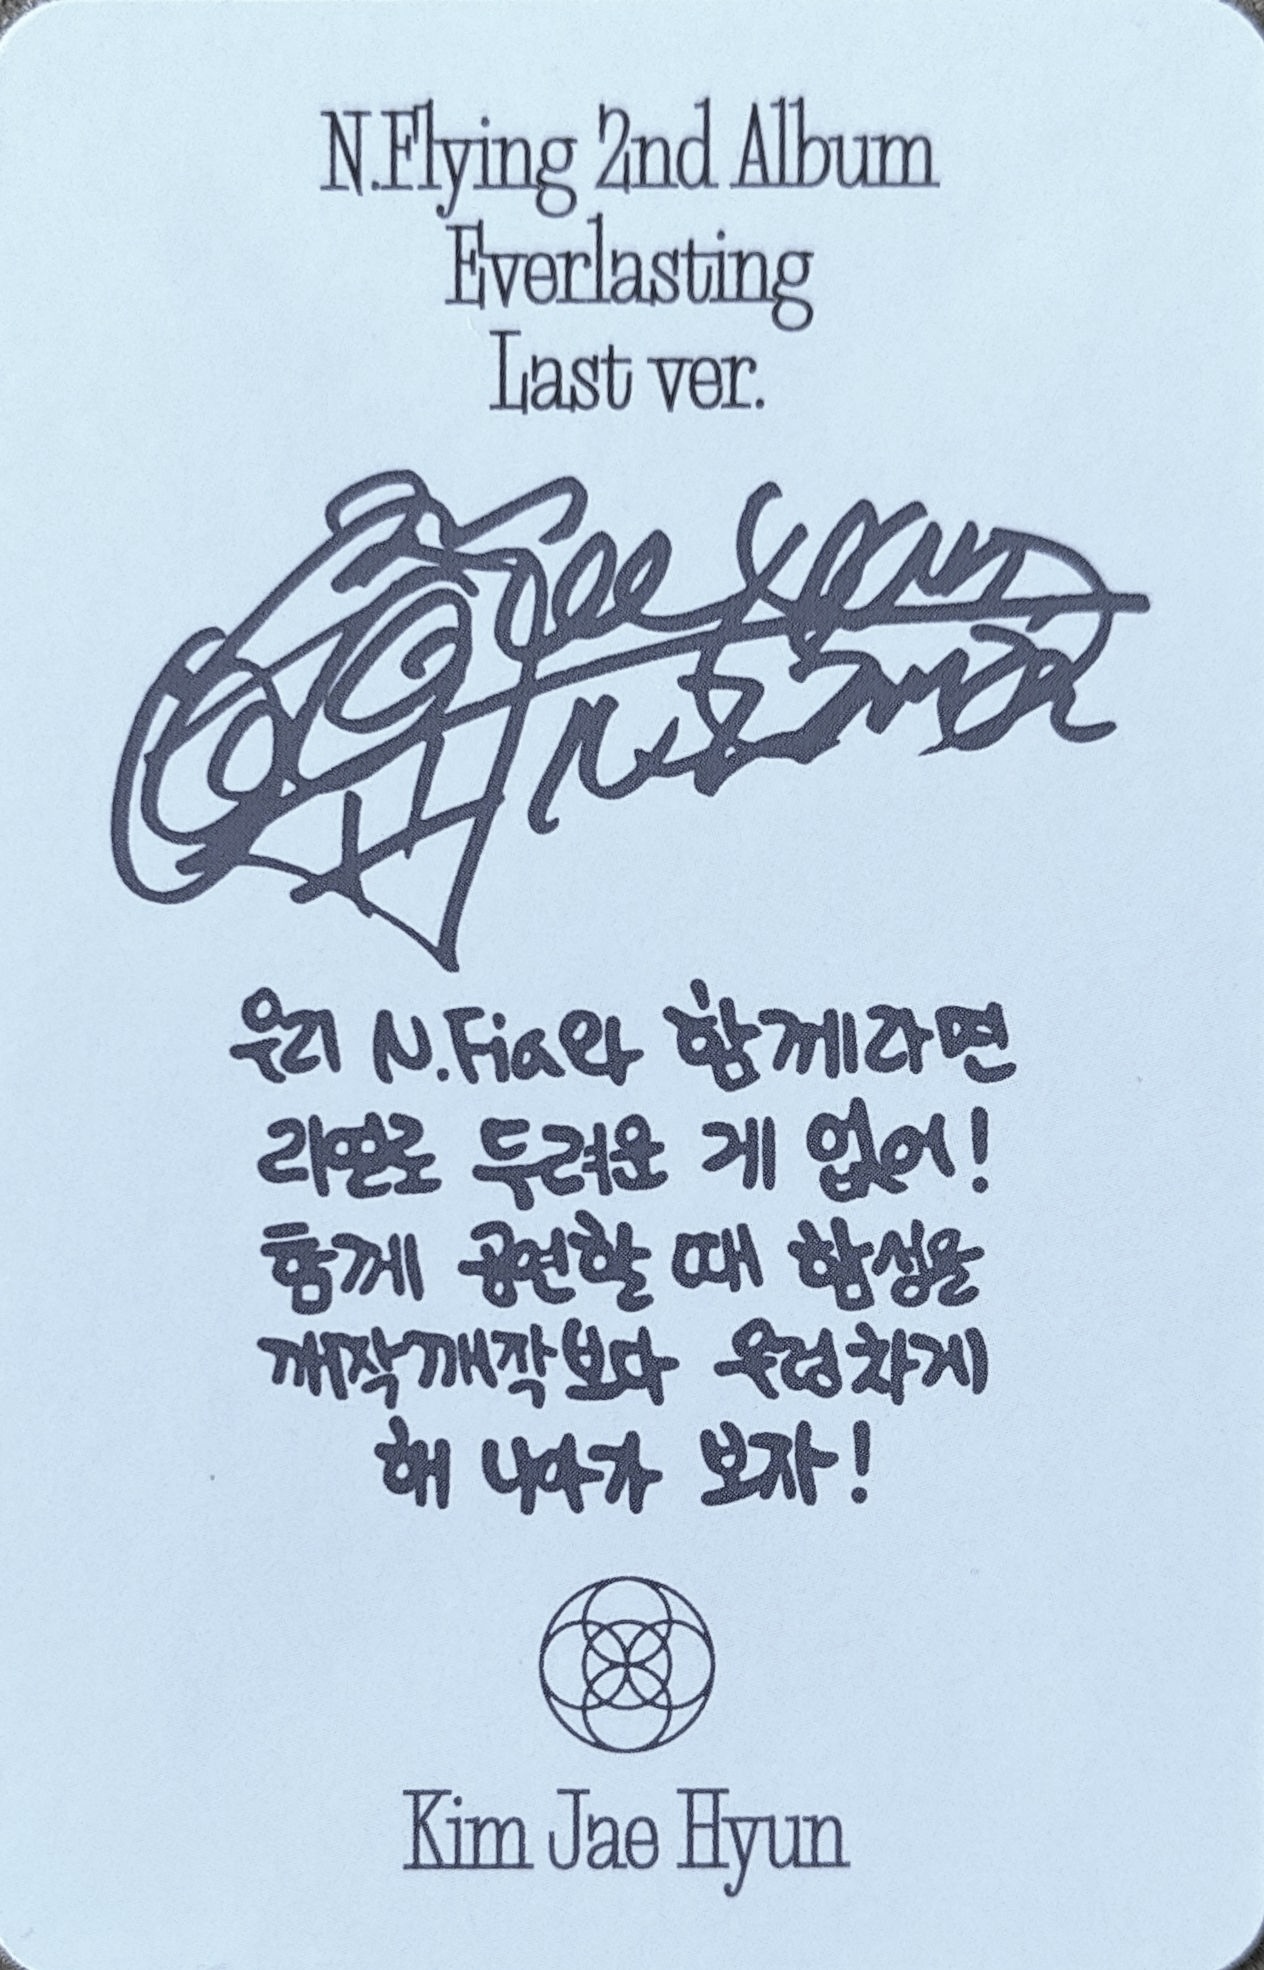 N.Flying 2nd Album
Everlasting
Last ver.
우리 N.Fia와 함께라면
리얼로 두려운 게 없어!
함께 공연할 때 함성을
깨작깨작보다 우렁차게
해 나아가 보자!
Kim Jae Hyun